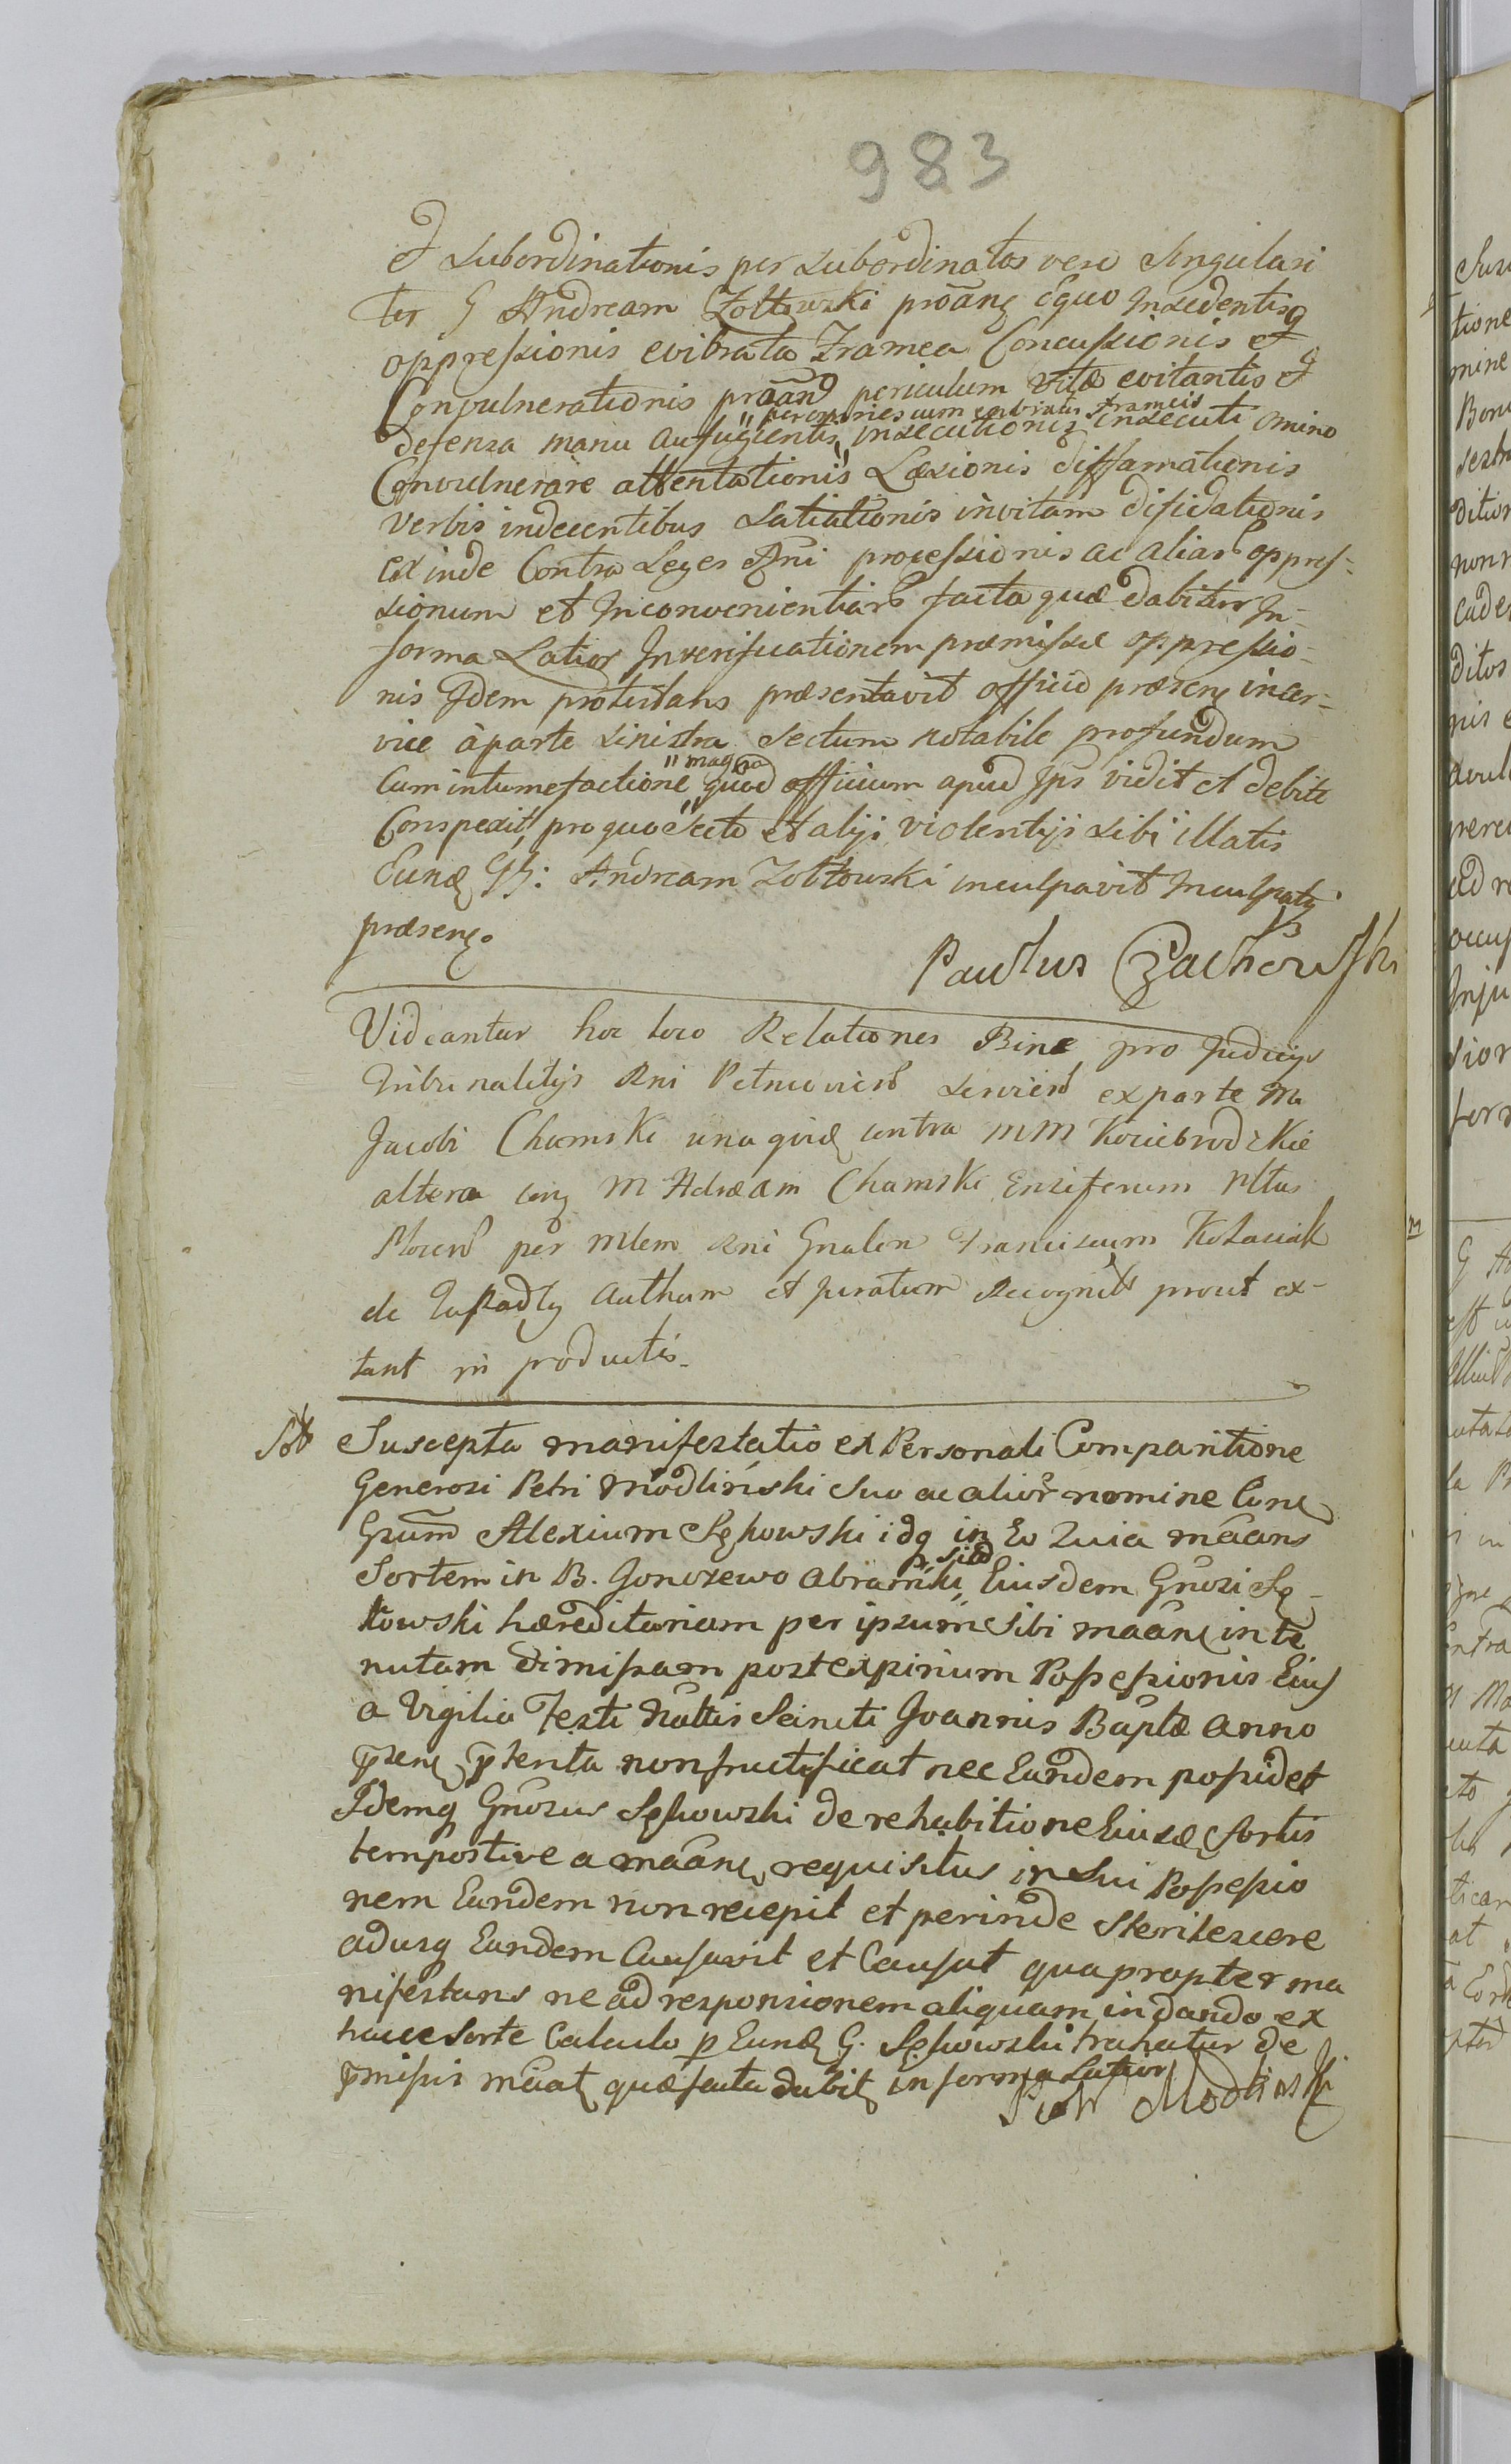 983
et subordinationis per subordinatos vero singulari
ter G Andream Zołtowski proãnꝫ Equo Insedentisq
oppressionis evibrata Framea Concussionis et
Convulnerationis proãn periculum vitæ evitantis et
"per cum evibratis Frameis
defensa manu aufugientis, insecutionis insecuti omino
Convulnerare attentationis Læsionis diffamationis
verbis indecentibus Satiationis invitam dificdationis
ex inde Contra Leges Rni processionis ac aliar oppres-
sionum et Inconvenientiar facta quæ dabitur In-
forma Latior In verificationem præmissæ oppressio-
nis Idem protestans præsentavit officio præsenꝫ in cer-
vice à parte sinistra Sectum notabile profundum
"magna
Cum intumefactione quod officium apud Ips vidit et debite
Conspexit, pro quo Secto et alijs violentijs sibi illatis
Eundꝫ G: Andream Zołtowski inculpavit Inculpatqꝫ
præsenꝫ.
Paulus Czachowski
Videantur hoc loco Relationes Binæ pro Judicijs
Tribunalitijs Rni Petricovien servien ex parte M
Jacobi Chamski una quidꝫ contra MM Kociebrodzkie
altera conꝫ M Adream Chamski Ensiferum Pltus
Plocen per Mlem Rni Gnalem Franciscum Kołaciak
de authum et juratum Recognit prout ex-
tant in productis.
Sbt Suscepta manifestatio ex Personali Comparitione
Generosi Petri Modliński Suo ac alior nomine Conꝫ
Grum Alexium Sękowski idq in Eo Quia mãans
sitã
Sortem in B. Gonozewo Abramki, Eiusdem Gnosi Sę-
kowski hæreditariam per ipsum Sibi mãanꝫ in te
nutam dimissam post expirium Possessionis Eius
a Vigilia Festi Nattis Sancti Joannis Baptæ anno
p̃senꝫ p̃tenta non fructificat nec Eandem possidet
Idemq Gnosus Sękowski de rehabitione Eiusdꝫ Sortis
tempostive a mãanꝫ requisitus in Sui Possessio
nem Eandem non recepit et perinde Sterilescere
adusq Eandem Causavit et Causat quapropter ma
nifestans ne ad responsionem aliquam in dando ex
hacce Sorte Calculo p Eundꝫ G. Sękowski trahatur de
p̃missis mãatꝫ quæ facta dabitꝫ in forma Latiori
Piotr Modliński